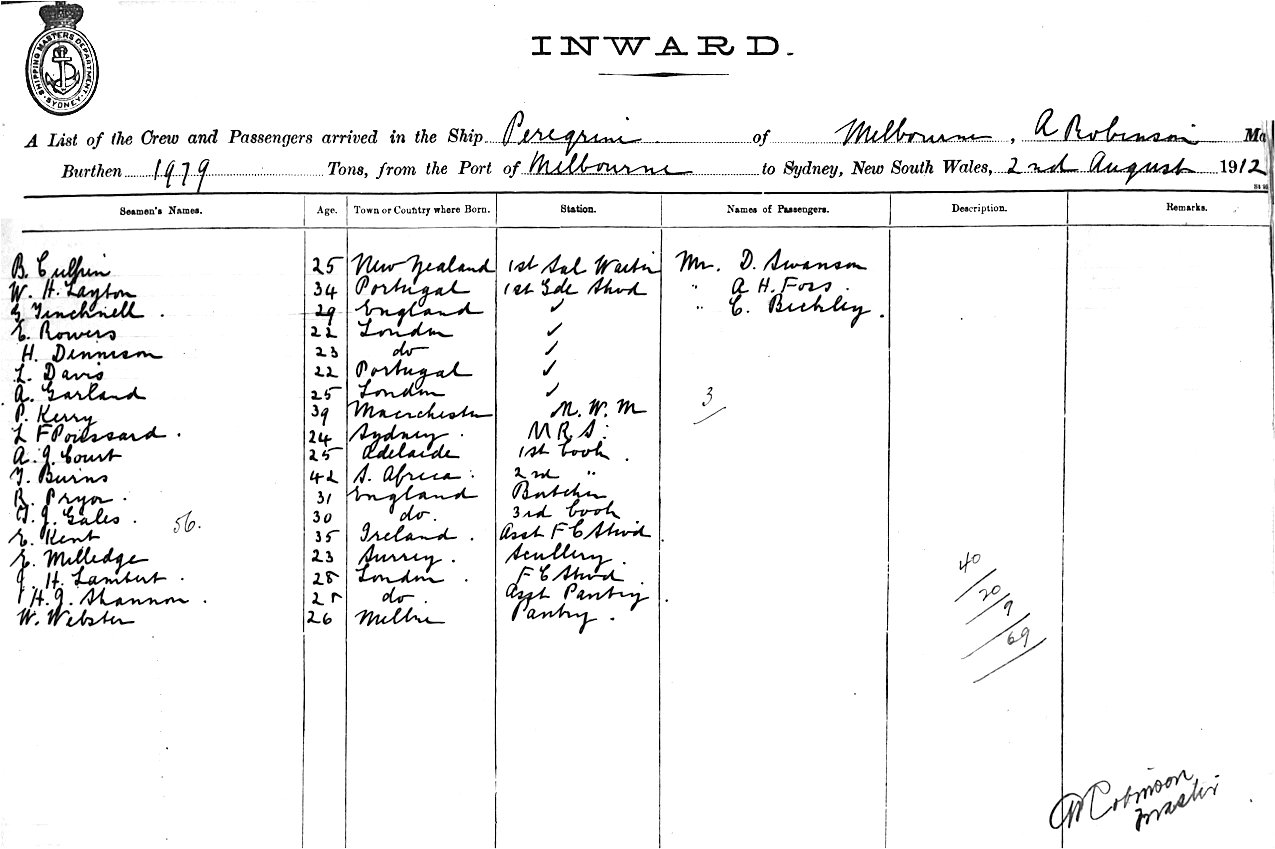 SHIPPING MASTERS DEPARTMENT. SYDNEY.
INWARD.
A List of the Crew and Passengers arrived in the Ship Peregrine of Melbourne, A Robinson Ma
Burthen 1979 Tons, from the Port of Melbourne to Sydney, New South Wales, 2nd August 1912
Seamen's Names. Age. Town or Country where Born. Station. Names of Passengers. Description. Remarks.
B. Culpin 25 New Zealand 1st Sal Waiter Mr. D. Swanson
W. H. Layton 34 Portugal 1st Sde Stwd " A H. Foss.
G. Tinchnell. 29 England ✓ " C. Bickley.
E. Rowers 22 London ✓
H. Dennison 23 do ✓
L. Davis 22 Portugal ✓
A. Garland 25 London ✓
P. Kerry 39 Manchester M. W. M 3
L F Poissard. 24 Sydney. M R S.
A. J. Court 25 Adelaide 1st Cook.
T. Burns 42 S. Africa. 2nd "
R. Pryor. 31 England Butcher
J. Gales. 56. 30 do. 3rd Cook
E. Kent 35 Ireland. Asst F C Stwd.
E. Milledge 23 Surrey. Scullery.
J. H. Lambert. 28 London. F C Stwd.
H. J. Shannon. 28 do. Asst Pantry.
W. Webster 26 Melbne Pantry.
40
20
9
69
A Robinson
Master